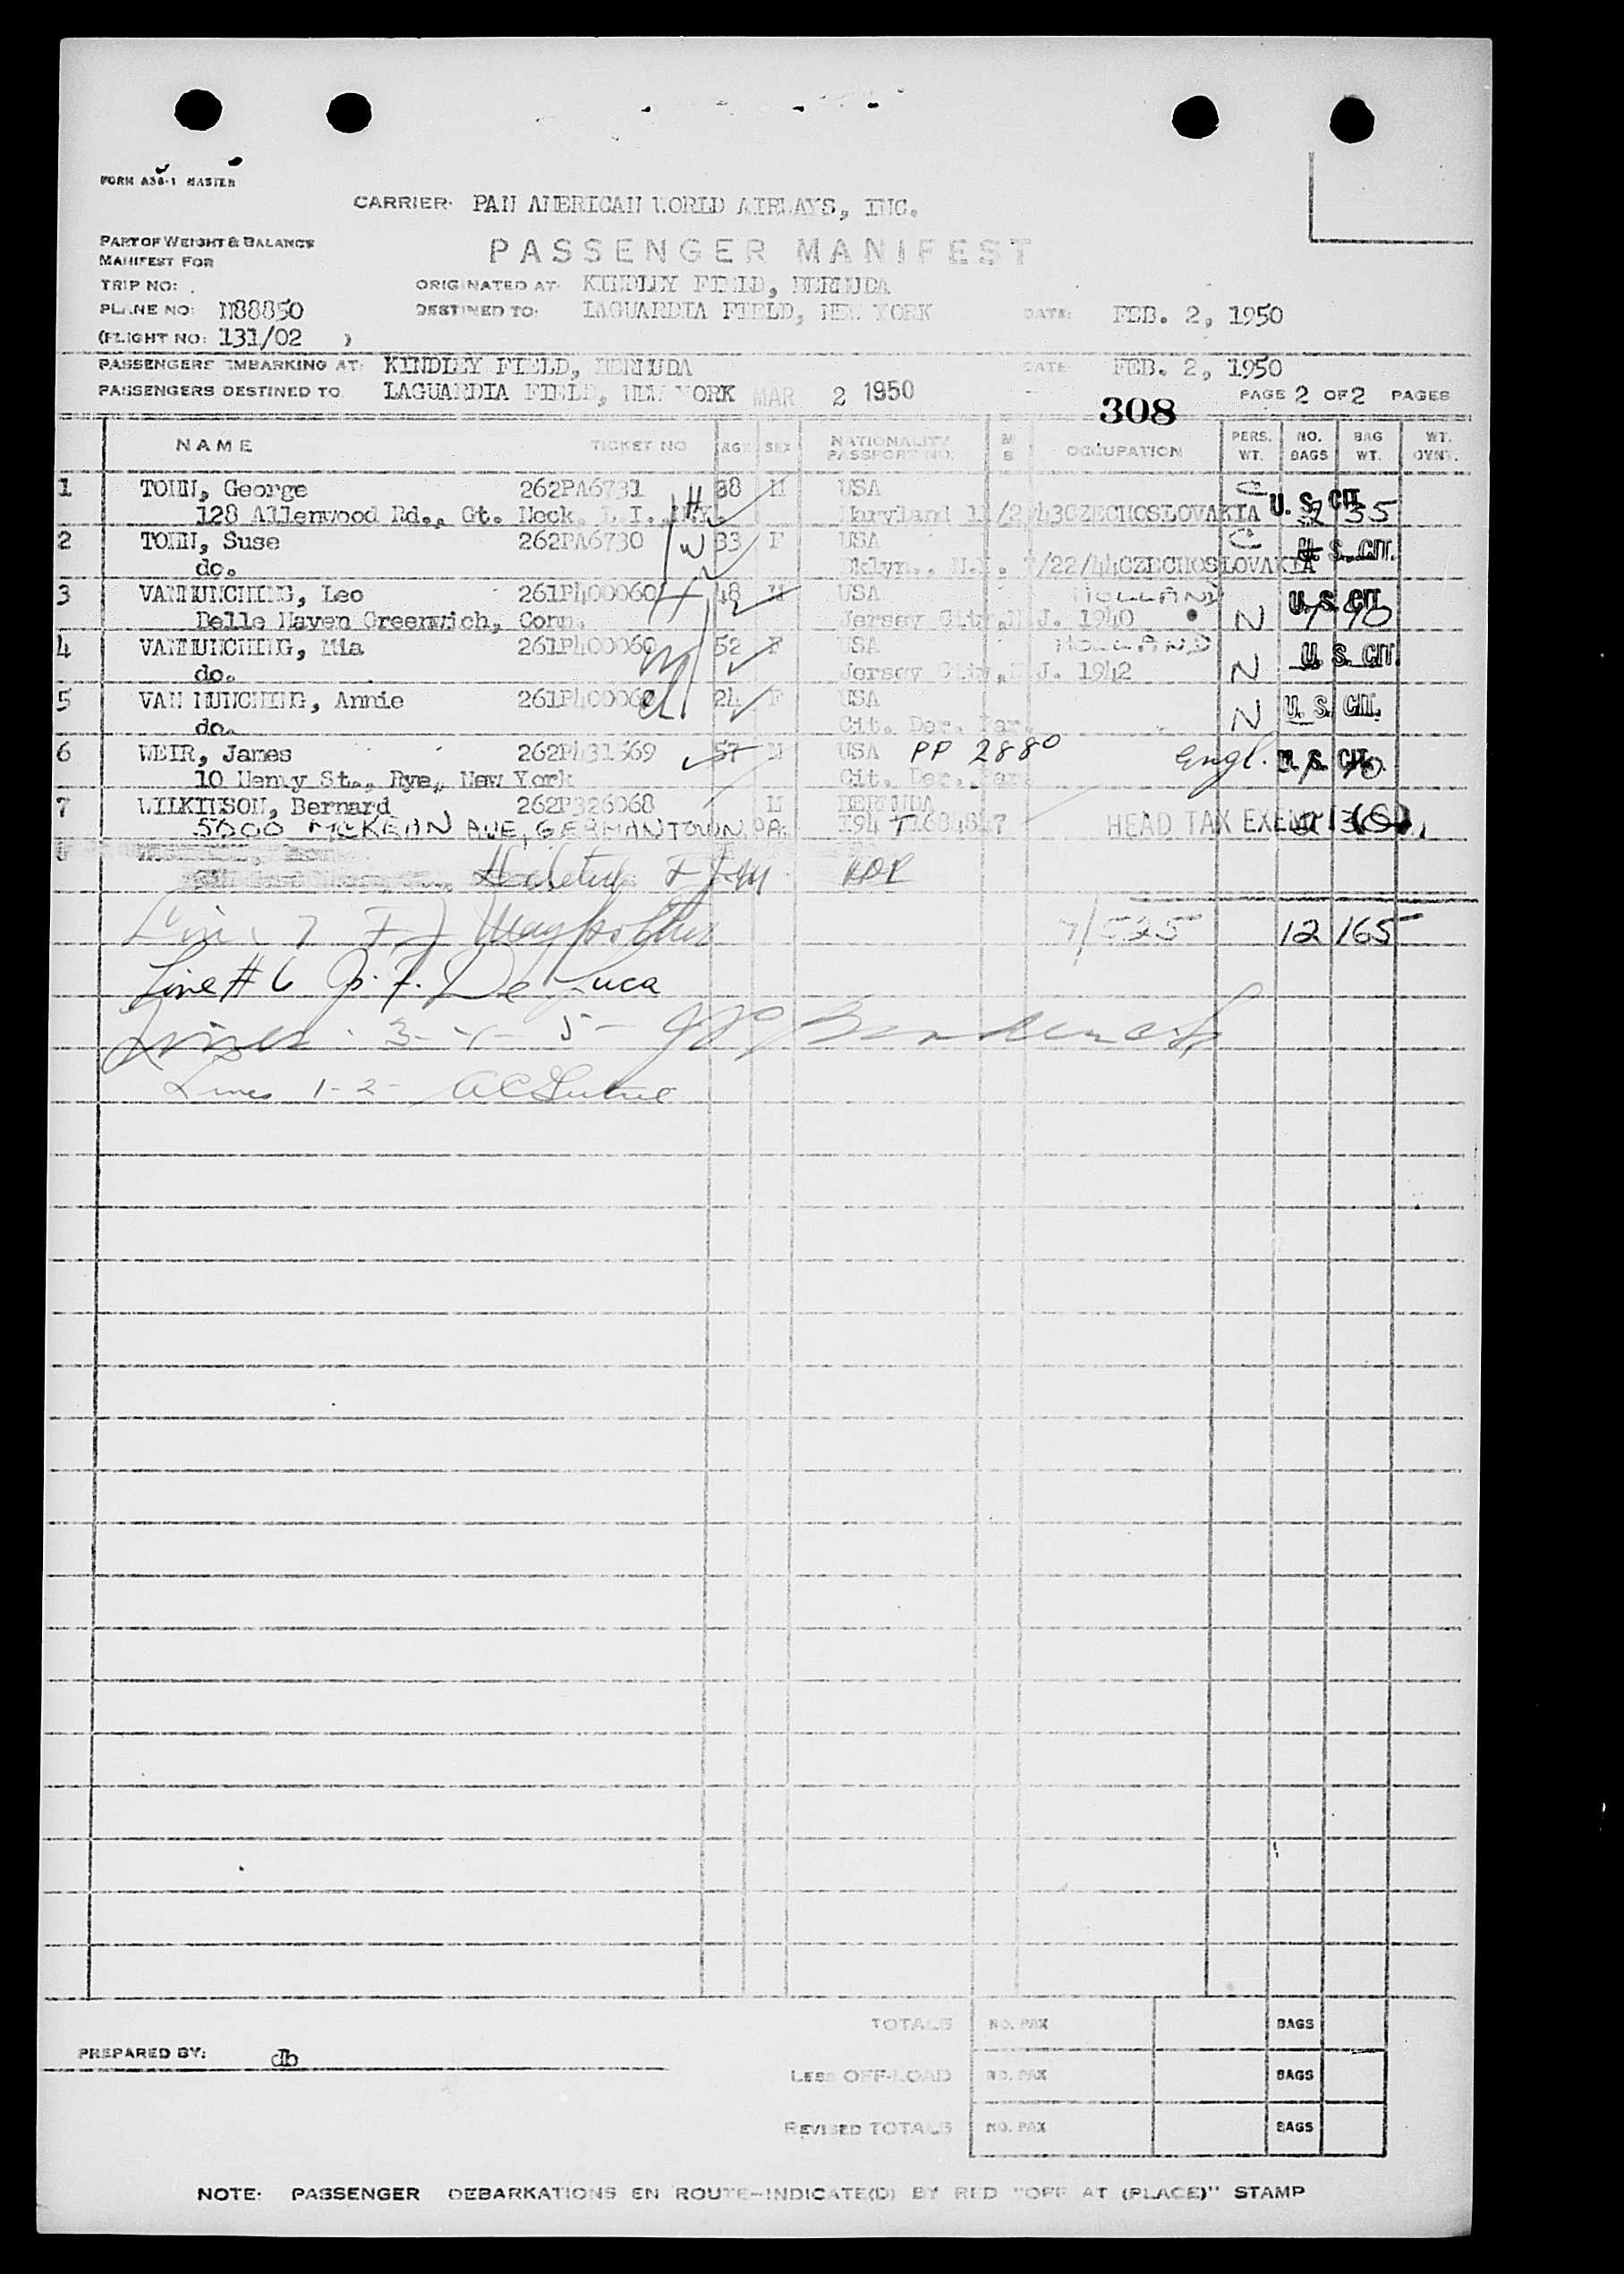 FORM A36-1 MASTER
CARRIER: PAN AMERICAN WORLD AIRWAYS, INC.
PART OF WEIGHT & BALANCE
MANIFEST FOR
PASSENGER MANIFEST
TRIP NO:
ORIGINATED AT: KINDLEY FIELD, BERMUDA
PLANE NO: N88850
DESTINED TO: LAGUARDIA FIELD, NEW YORK DATE: FEB. 2, 1950
(FLIGHT NO: 131/02 )
PASSENGERS EMBARKING AT: KINDLEY FIELD, BERMUDA DATE: FEB. 2, 1950
PASSENGERS DESTINED TO LAGUARDIA FIELD, NEW YORK MAR 2 1950 308 PAGE 2 OF 2 PAGES
NAME TICKET NO AGE SEX NATIONALITY PASSPORT NO. M S OCCUPATION PERS. WT. NO. BAGS BAG WT. WT. OVNT.
1 George 262PA6731 H 38 M USA C U. S. CIT.
128 Allenwood Rd., Gt. Neck, L. I., N.Y. Maryland CZECHOSLOVAKIA 35
2 Suse 262PA6730 W 33 F USA C U. S. CIT.
do. Bklyn., N.Y. 7/22/44 CZECHOSLOVAKIA
3 VANMUNCHING, Leo 261P400060 H 48 M USA HOLLAND U. S. CIT
Belle Haven Greenwich, Conn. Jersey City, N.J. 1940 N
4 VANMUNCHING, Mia 261P400060 W 52 F USA HOLLAND U. S. CIT
do. Jersey City, N.J. 1942 N
5 VAN MUNCHING, Annie 261P400060 d 24 F USA U. S. CIT.
do. Cit. Der. Par. N
6 WEIR, James 262P431369 57 M USA PP 2880 Engl. U. S. CIT.
10 Henry St., Rye, New York Cit. Der. Par.
7 WILKINSON, Bernard 262P326068 M BERMUDA
5600 McKEAN AVE, GERMANTOWN, PA. I94 HEAD TAX EXEMPT
8
Line 7 7/525 12 165
Line # 6 J. F. De Luca
Lines 3-4-5-
Lines 1-2-
TOTALS NO. PAX BAGS
PREPARED BY: db
LESS OFF-LOAD NO. PAX BAGS
REVISED TOTALS NO. PAX BAGS
NOTE: PASSENGER DEBARKATIONS EN ROUTE-INDICATE(D) BY RED "OFF AT (PLACE)" STAMP